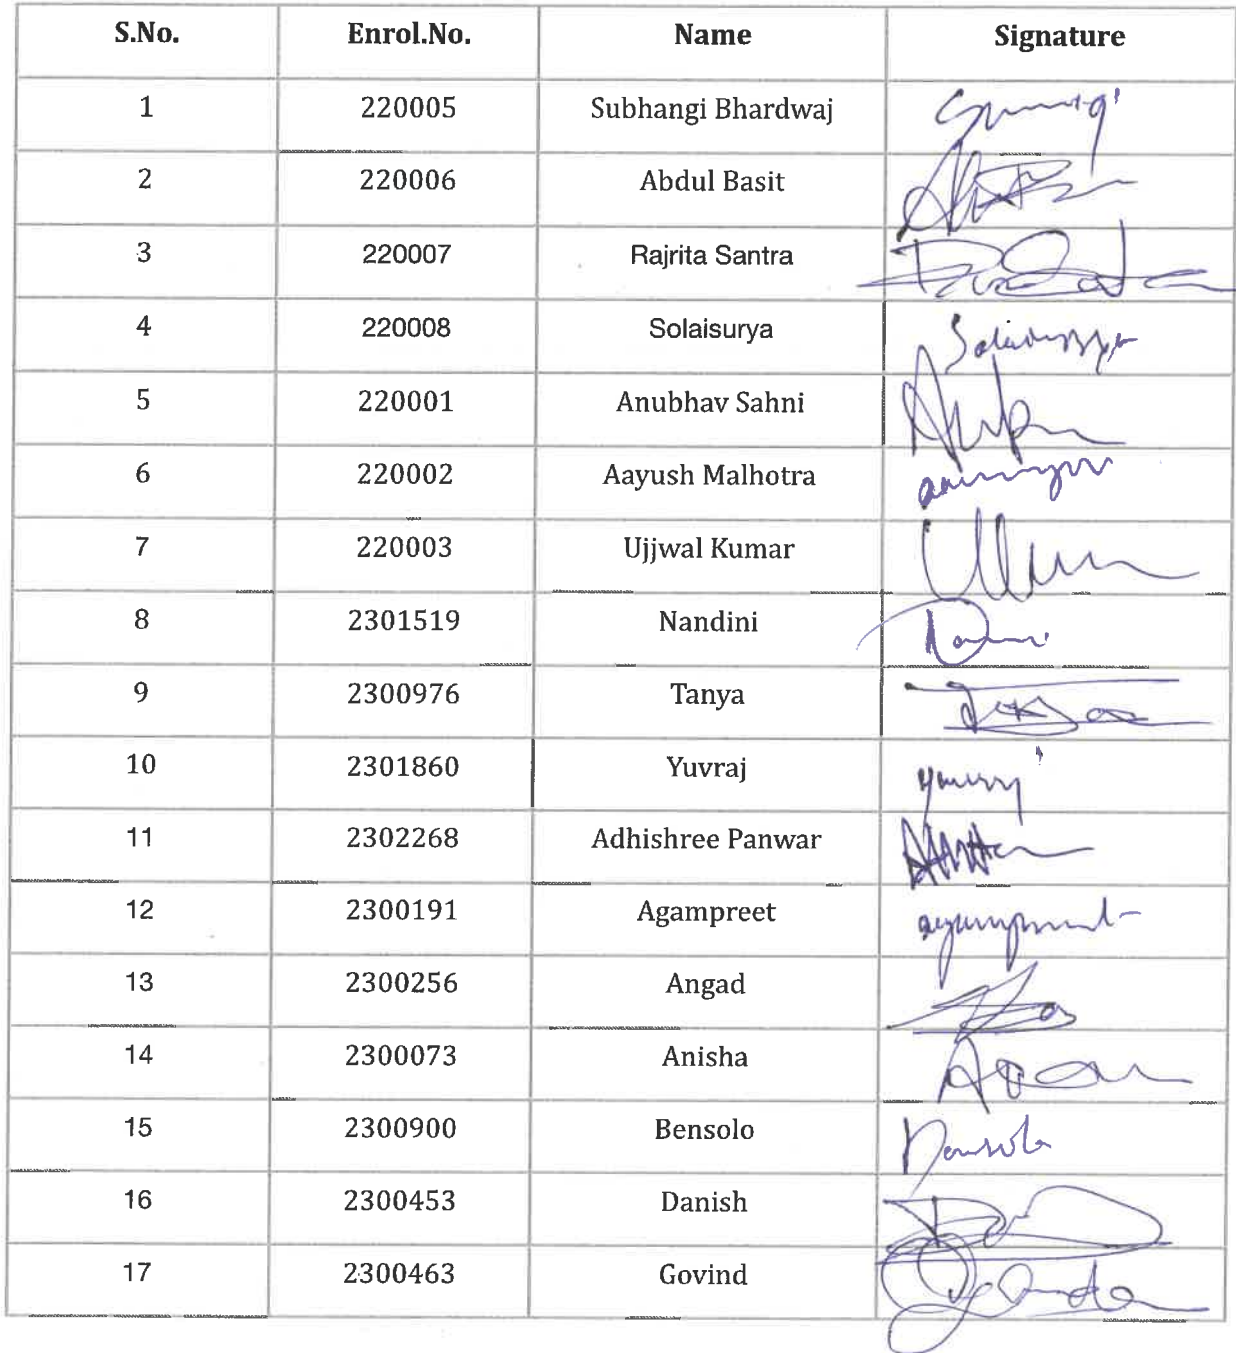 S.No. Enrol.No. Name Signature
1 220005 Subhangi Bhardwaj
2 220006 Abdul Basit
3 220007 Rajrita Santra
4 220008 Solaisurya Solaisurya
5 220001 Anubhav Sahni
6 220002 Aayush Malhotra
7 220003 Ujjwal Kumar
8 2301519 Nandini
9 2300976 Tanya
10 2301860 Yuvraj
11 2302268 Adhishree Panwar
12 2300191 Agampreet agampreet
13 2300256 Angad
14 2300073 Anisha
15 2300900 Bensolo Bensolo
16 2300453 Danish
17 2300463 Govind